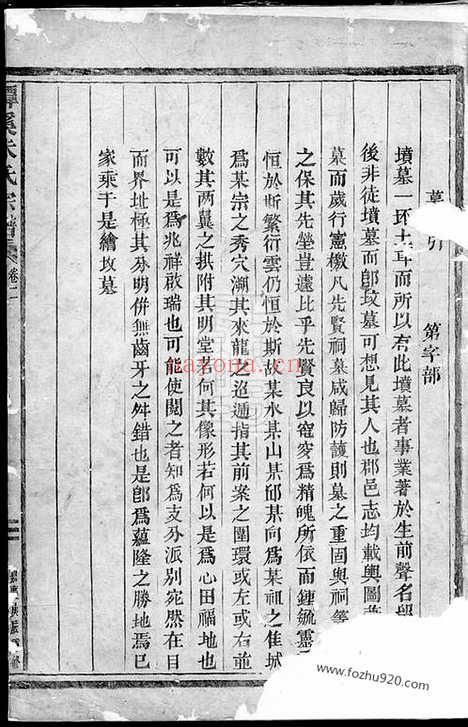 墓引　第字部
墳墓一抔土耳而所以有此墳墓者事業著於生前聲名留
後非徒墳墓而卽墳墓可想見其人也郡邑志均載輿圖
墓而歲行憲檄凡先賢祠墓咸歸防護則墓之重固與祠等
之保其先塋豈遽比乎先賢良以窀穸爲精魄所依而鍾毓靈
恒於斯繁衍雲仍恒於斯故某水某山某邱某向爲某祖之佳城
爲某宗之秀穴溯其來龍之迢遞指其前案之圍環或左或右並
數其兩翼之拱附其明堂若何其像形若何以是爲心田福地也
可以是爲兆祥啟瑞也可能使閱之者知爲支分派別宛然在目
而界址極其分明併無齒牙之舛錯也是卽爲蘊隆之勝地焉已
家乘于是繪坟墓
潭溪朱氏宗譜
卷二
nayona.cn
www.fozhu920.com